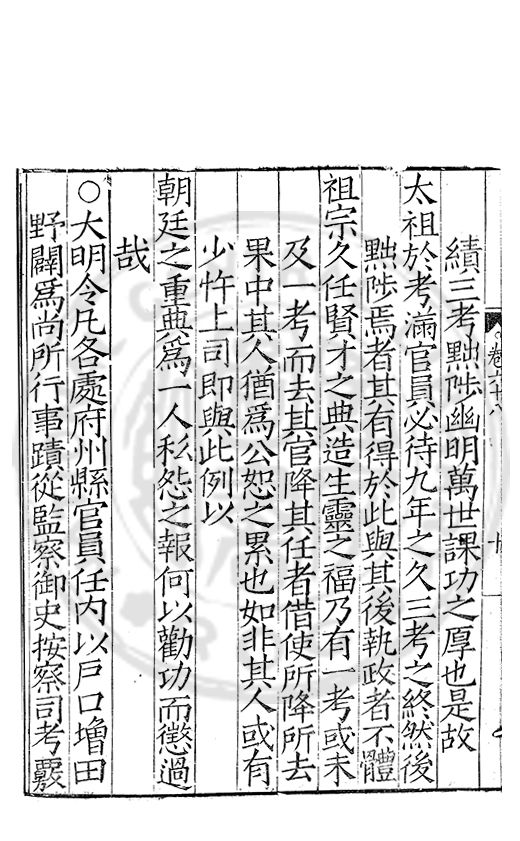 卷六十八
績三考黜陟幽明萬世課功之厚也是故
太祖於考滿官員必待九年之久三考之終然後
黜陟焉者其有得於此與其後執政者不體
祖宗久任賢才之典造生靈之福乃有一考或未
及一考而去其官降其任者借使所降所去
果中其人猶為公恕之累也如非其人或有
少忤上司即與此例以
朝廷之重典為一人私怨之報何以勸功而懲過
哉
○大明令凡各處府州縣官員任內以戶口增田
野闢為尚所行事蹟從監察御史按察司考覈